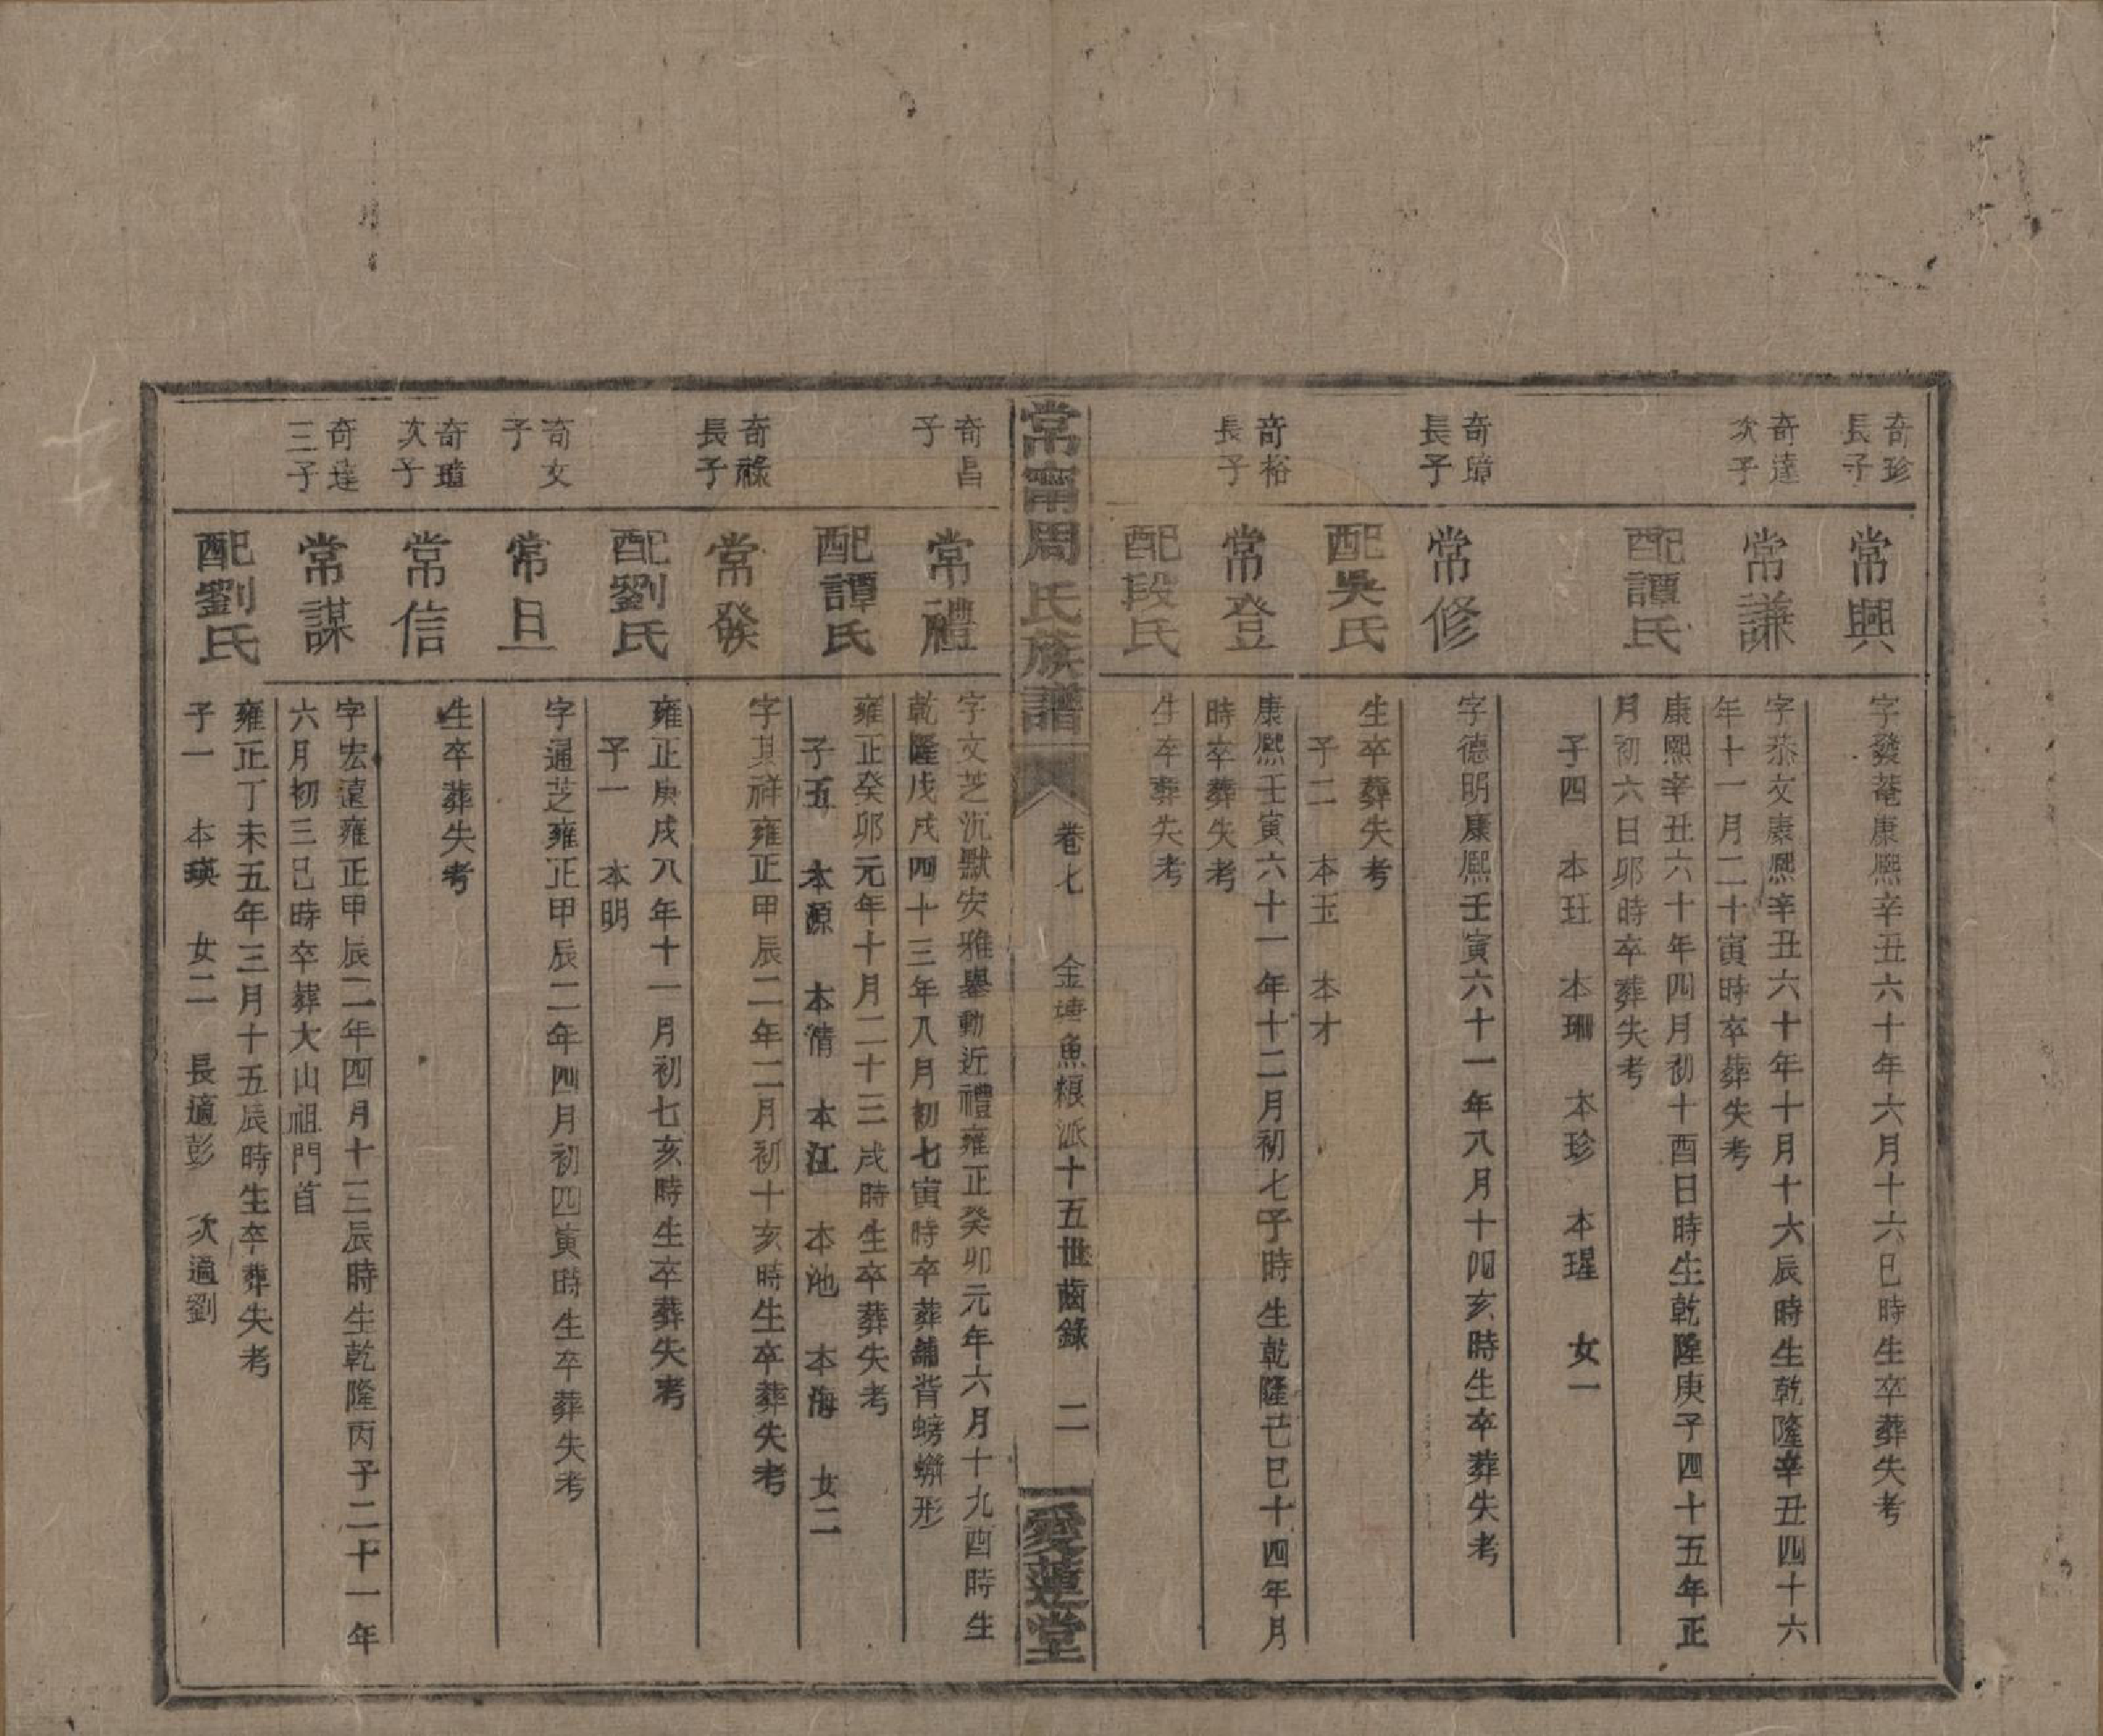 奇珍
長子
常興
字發菴康熈辛丑六十年六月十六巳時生卒葬失考
奇達
次子
常謙
字恭文康熈辛丑六十年十月十六辰時生乾隆辛丑四十六
年十一月二十寅時卒葬失考
配譚氏
康熈辛丑六十年四月初十酉日時生乾隆庚子四十五年正
月初六日卯時卒葬失考
子四 本玨 本珊 本珍 本瑆 女一
奇璋
長子
常修
字德明康熈壬寅六十一年八月十四亥時生卒葬失考
配吳氏
生卒葬失考
子二 本玉 本才
奇裕
長子
常登
康熈壬寅六十一年十二月初七子時生乾隆己巳十四年月
時卒葬失考
配段氏
生卒葬失考
常甯周氏族譜
卷七 金塘魚粮派十五世齒錄 二
愛蓮堂
奇昌
子
常禮
字文芝沉默安雅舉動近禮雍正癸卯元年六月十九酉時生
乾隆戊戌四十三年八月初七寅時卒葬舖背螃蠏形
配譚氏
雍正癸卯元年十月二十三戌時生卒葬失考
子五 本源 本清 本江 本池 本海 女二
奇祿
長子
常發
字其祥雍正甲辰二年二月初十亥時生卒葬失考
配劉氏
雍正庚戌八年十一月初七亥時生卒葬失考
子一 本明
奇文
子
常旦
字通芝雍正甲辰二年四月初四寅時生卒葬失考
奇璋
次子
常信
生卒葬失考
奇達
三子
常謀
字宏遠雍正甲辰二年四月十三辰時生乾隆丙子二十一年
六月初三巳時卒葬大山祖門首
配劉氏
雍正丁未五年三月十五辰時生卒葬失考
子一 本瑛 女二 長適彭 次適劉